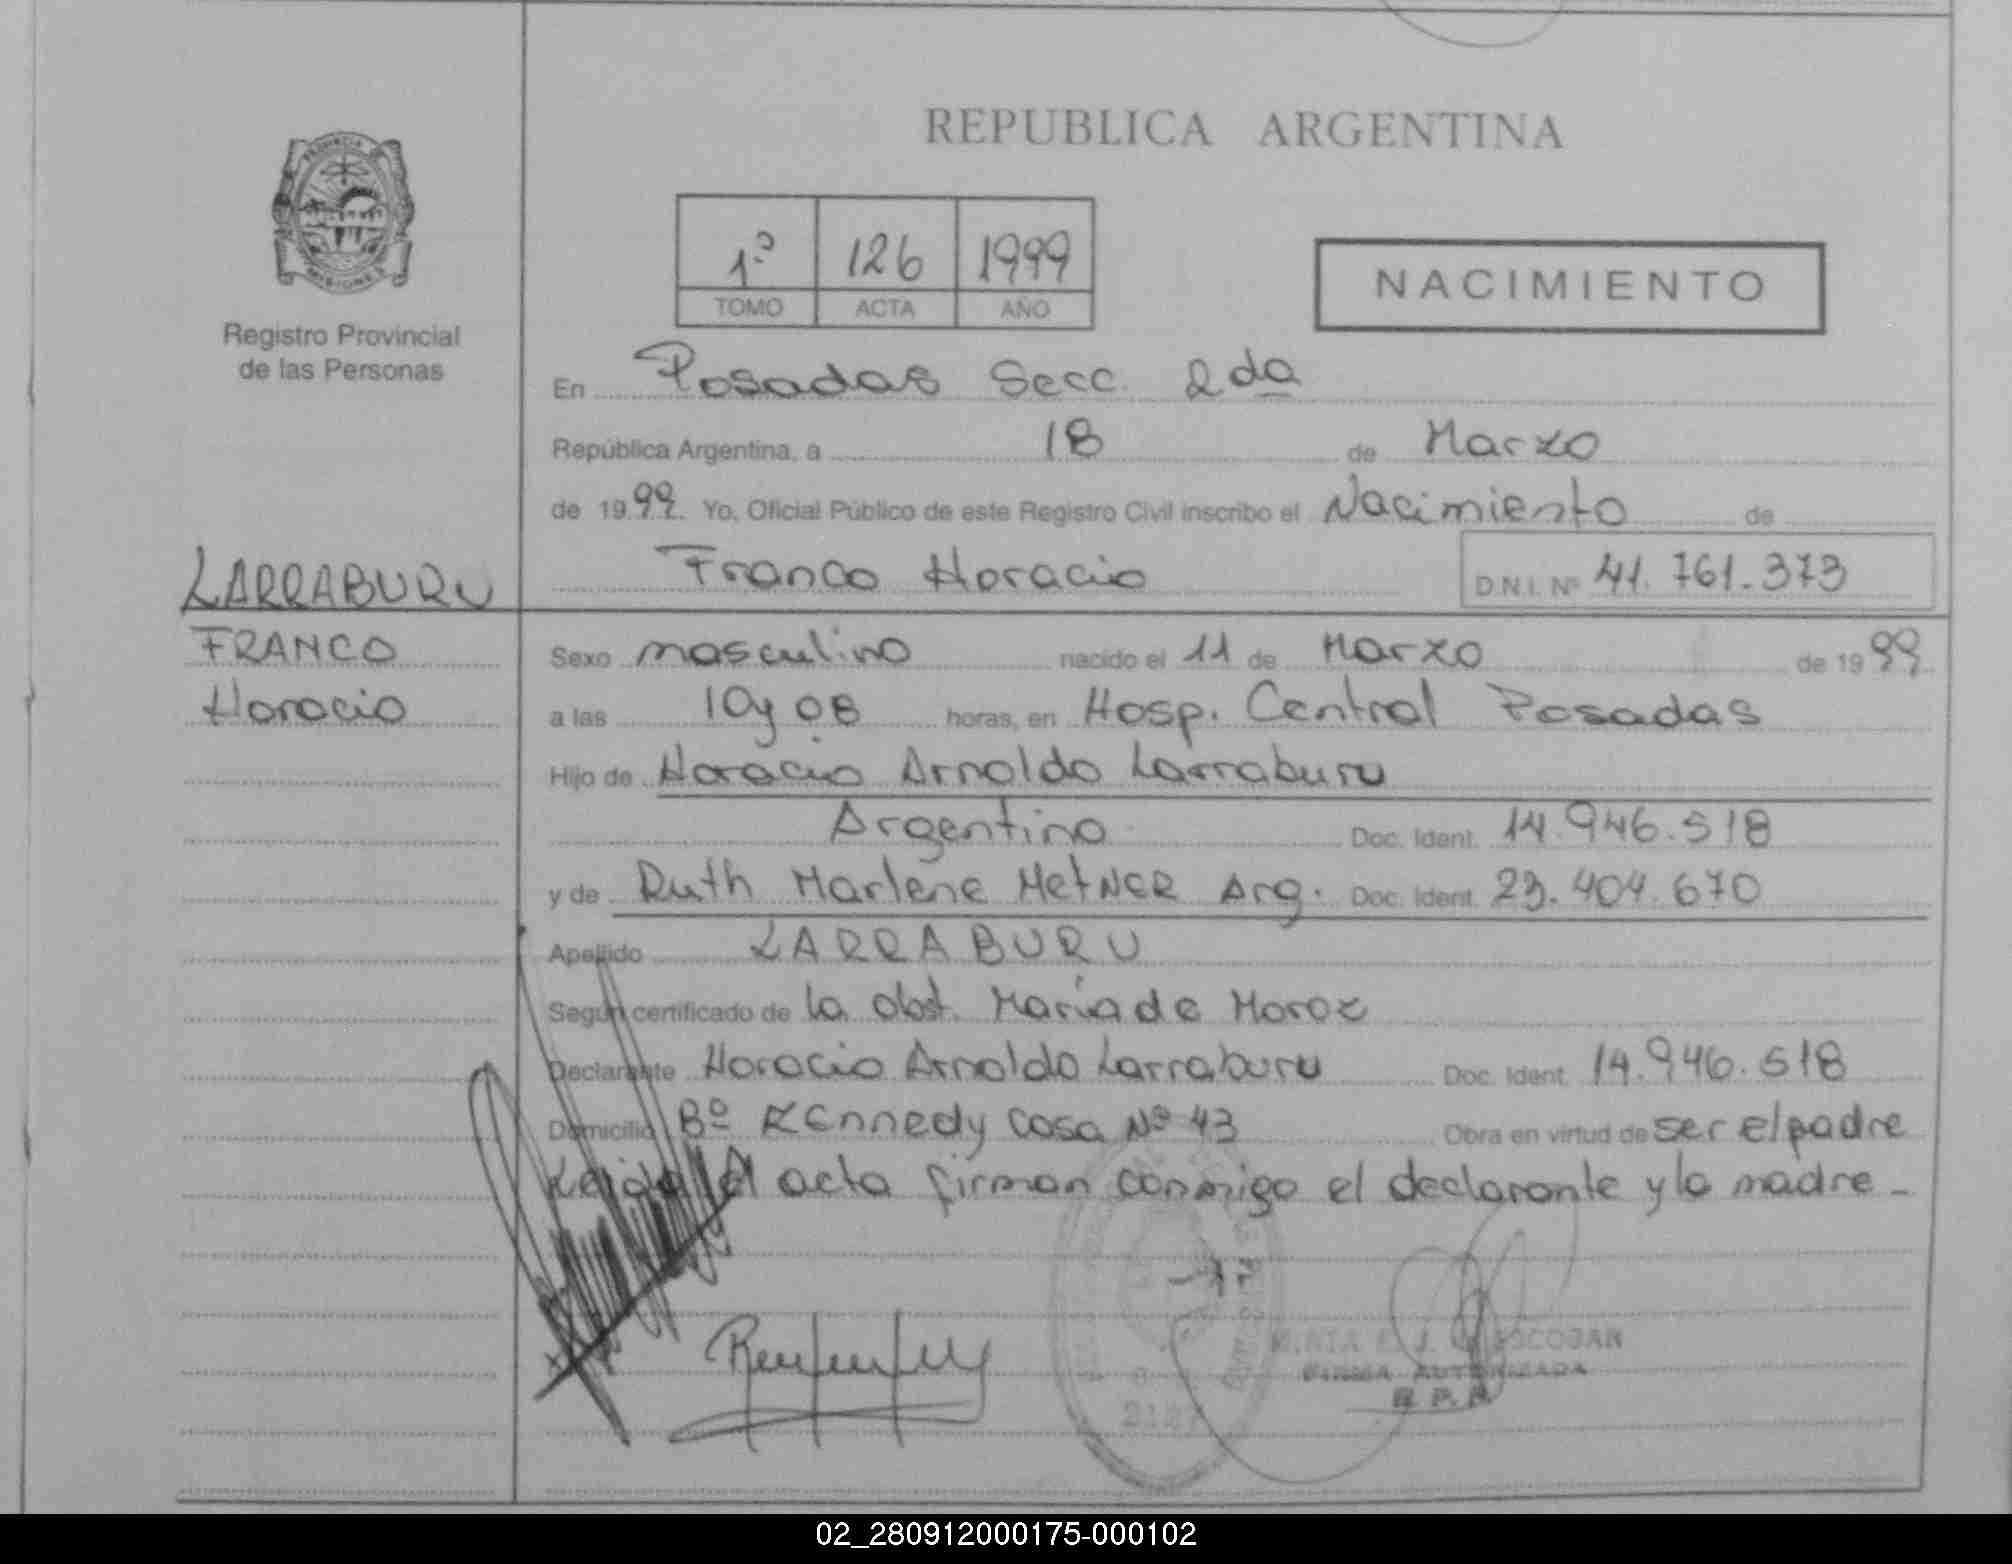 REPUBLICA ARGENTINA
PROVINCIA DE
MISIONES
Registro Provincial
de las Personas
1º 126 1999
TOMO ACTA AÑO
NACIMIENTO
En Posadas Secc. 2da
República Argentina, a 18 de Marzo
de 1999. Yo, Oficial Público de este Registro Civil inscribo el Nacimiento de
Franco Horacio D.N.I. Nº 41.761.373
LARRABURU
FRANCO
Horacio
Sexo masculino nacido el 11 de Marzo de 1999
a las 10y 08 horas, en Hosp. Central Posadas
Hijo de Horacio Arnoldo Larraburu
Argentino Doc. Ident. 14.946.518
y de Ruth Marlene MetNER Arg. Doc. Ident. 23.404.670
Apellido LARRABURU
Según certificado de la obst. Maria de Moroz
Declarante Horacio Arnoldo Larraburu Doc. Ident. 14.946.518
Domicilio Bº Kennedy casa Nº 43 Obra en virtud de ser el padre
Leida el acta firman conmigo el declarante y la madre -
ESCOBAR
FIRMA AUTORIZADA
R. P. P.
02_280912000175-000102